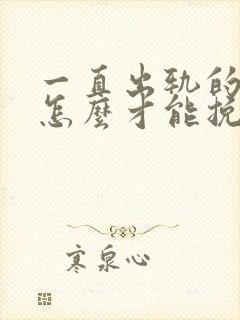 一直出轨的
怎麼才能挽
寒泉心